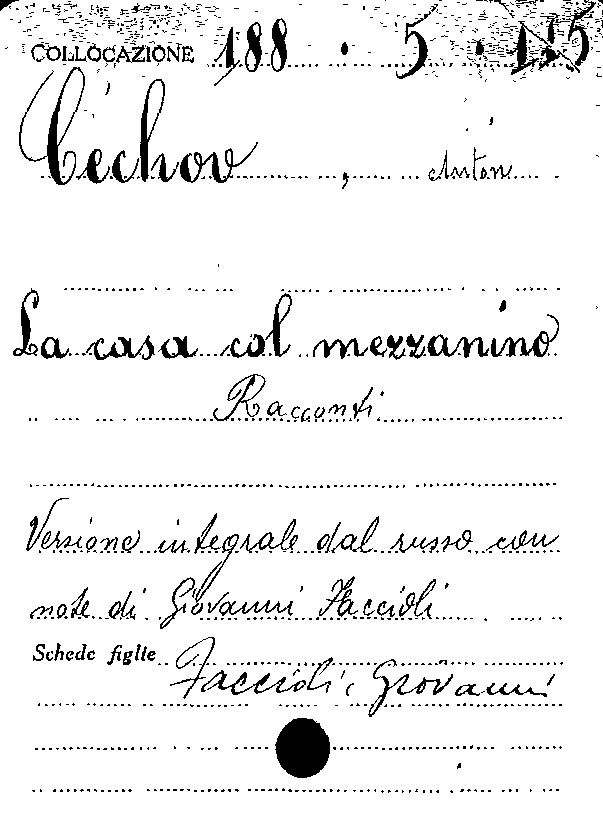 COLLOCAZIONE 188 . 5 .
Céchov, Anton
La casa col mezzanino
Racconti
Versione integrale dal russo con
note di Giovanni Faccioli
Schede figlie
Faccioli, Giovanni